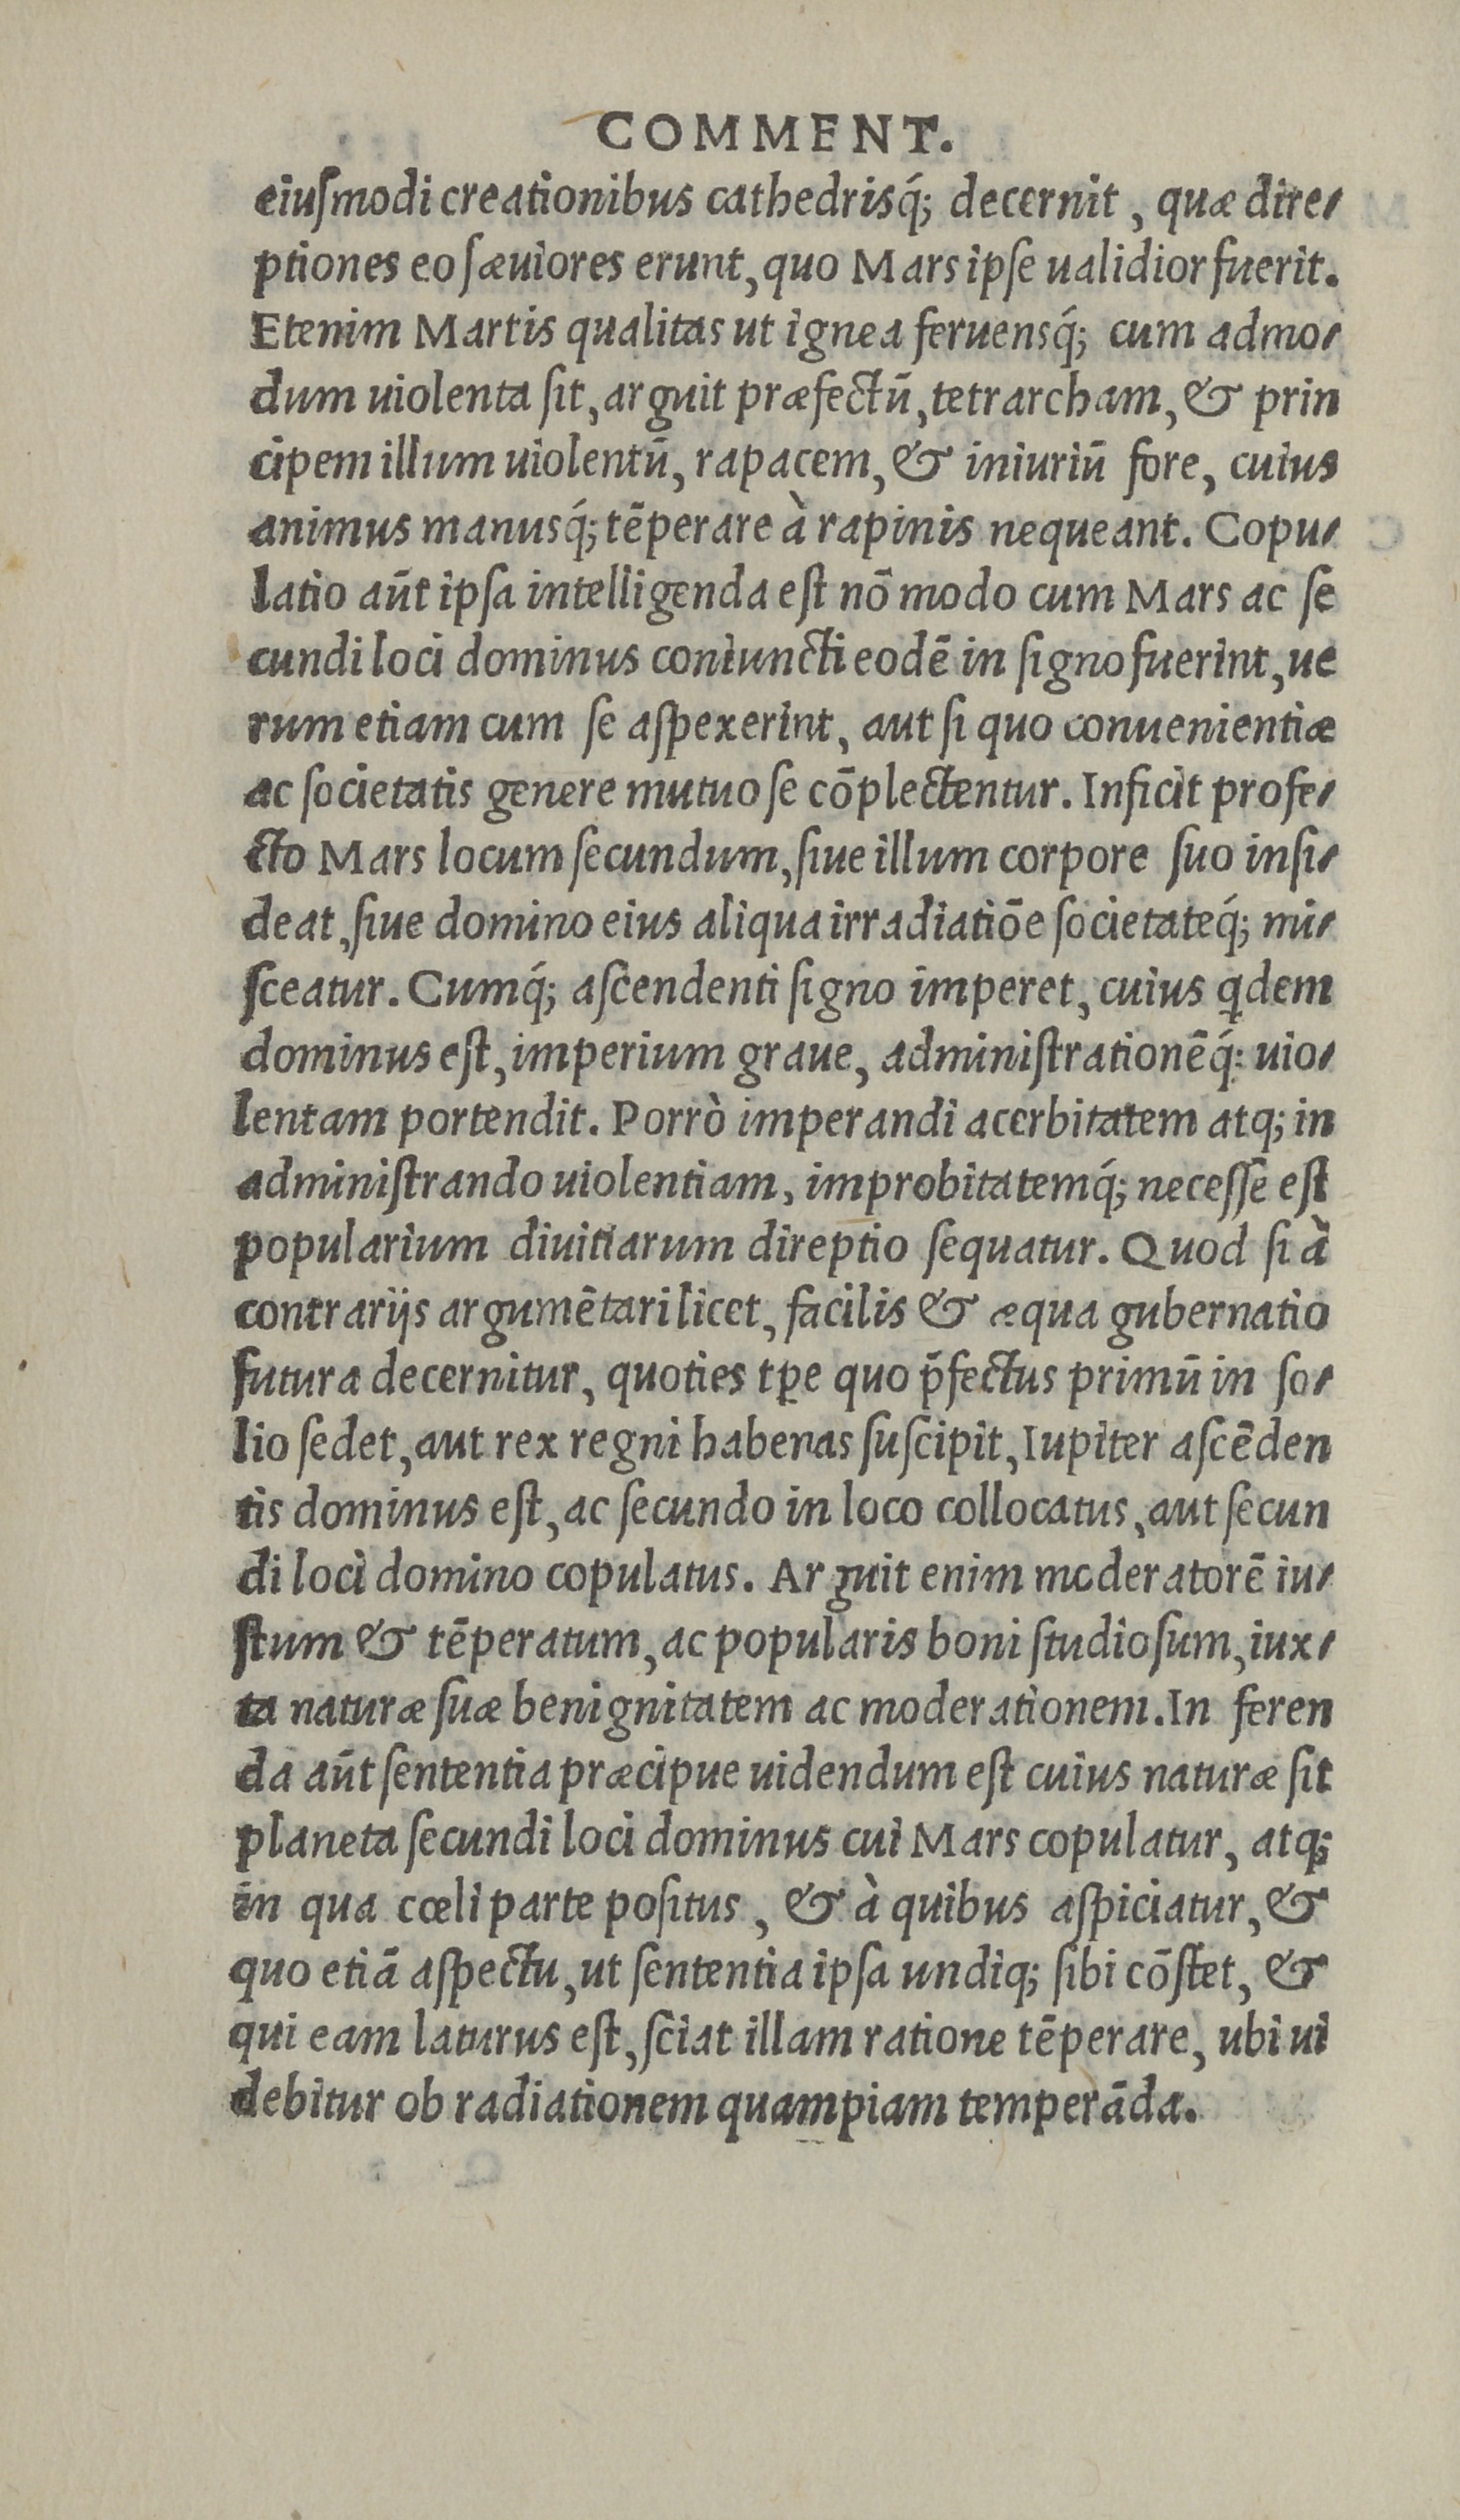 COMMENT.
eiuſmodi creationibus cathedrisq́; decernit, quæ dire⸗
ptiones eo ſæuiores erunt, quo Mars ipſe ualidior fuerit.
Etenim Martis qualitas ut ignea feruensq́; cum admo⸗
dum uiolenta ſit, arguit præfectū, tetrarcham, & prin
cipem illum uiolentū, rapacem, & iniuriū fore, cuius
animus manusq́; tēperare à rapinis nequeant. Copu⸗
latio aūt ipſa intelligenda eſt nō modo cum Mars ac ſe
cundi loci dominus coniuncti eodē in ſigno fuerint, ue
rum etiam cum ſe aſpexerint, aut ſi quo conuenientiæ
ac ſocietatis genere mutuo ſe cōplectentur. Inficit profe⸗
cto Mars locum ſecundum, ſiue illum corpore ſuo inſi⸗
deat, ſiue domino eius aliqua irradiatiōe ſocietateq́; mi⸗
ſceatur. Cumq́; aſcendenti ſigno imperet, cuius qdem
dominus eſt, imperium graue, adminiſtrationēq́: uio⸗
lentam portendit. Porrò imperandi acerbitatem atq; in
adminiſtrando uiolentiam, improbitatemq́; neceſſe eſt
popularium diuitiarum direptio ſequatur. Quod ſi à
contrarijs argumētari licet, facilis & æqua gubernatio
futura decernitur, quoties tꝑe quo p̄fectus primū in ſo⸗
lio ſedet, aut rex regni habenas ſuſcipit, Iupiter aſcēden
tis dominus eſt, ac ſecundo in loco collocatus, aut ſecun
di loci domino copulatus. Arguit enim moderatorē iu⸗
ſtum & tēperatum, ac popularis boni ſtudioſum, iux⸗
ta naturæ ſuæ benignitatem ac moderationem. In feren
da aūt ſententia præcipue uidendum eſt cuius naturæ ſit
planeta ſecundi loci dominus cui Mars copulatur, atq;
in qua cœli parte poſitus, & à quibus aſpiciatur, &
quo etiā aſpectu, ut ſententia ipſa undiq; ſibi cōſtet, &
qui eam laturus eſt, ſciat illam ratione tēperare, ubi ui
debitur ob radiationem quampiam temperāda.